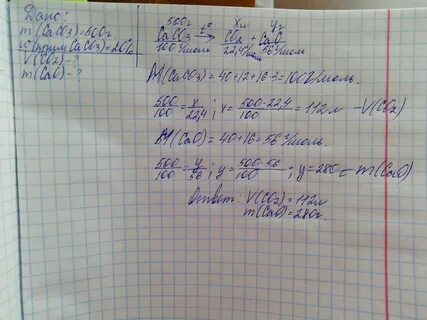 Дано:
m(CaCO3)=500г
w(прим CaCO3)=20%
V(CO2)-?
m(CaO)-?
500г xл yг
CaCO3 t°→ CO2 + CaO
100г/моль 22,4л/моль 56г/моль
M(CaCO3)=40+12+16·3=100г/моль.
500/100 = x/22,4; x= 500·22,4/100 = 112л -V(CO2)
M(CaO)=40+16=56г/моль.
500/100 = y/56; y= 500·56/100; y=280г = m(CaO)
Ответ: V(CO2)=112л
m(CaO)=280г.